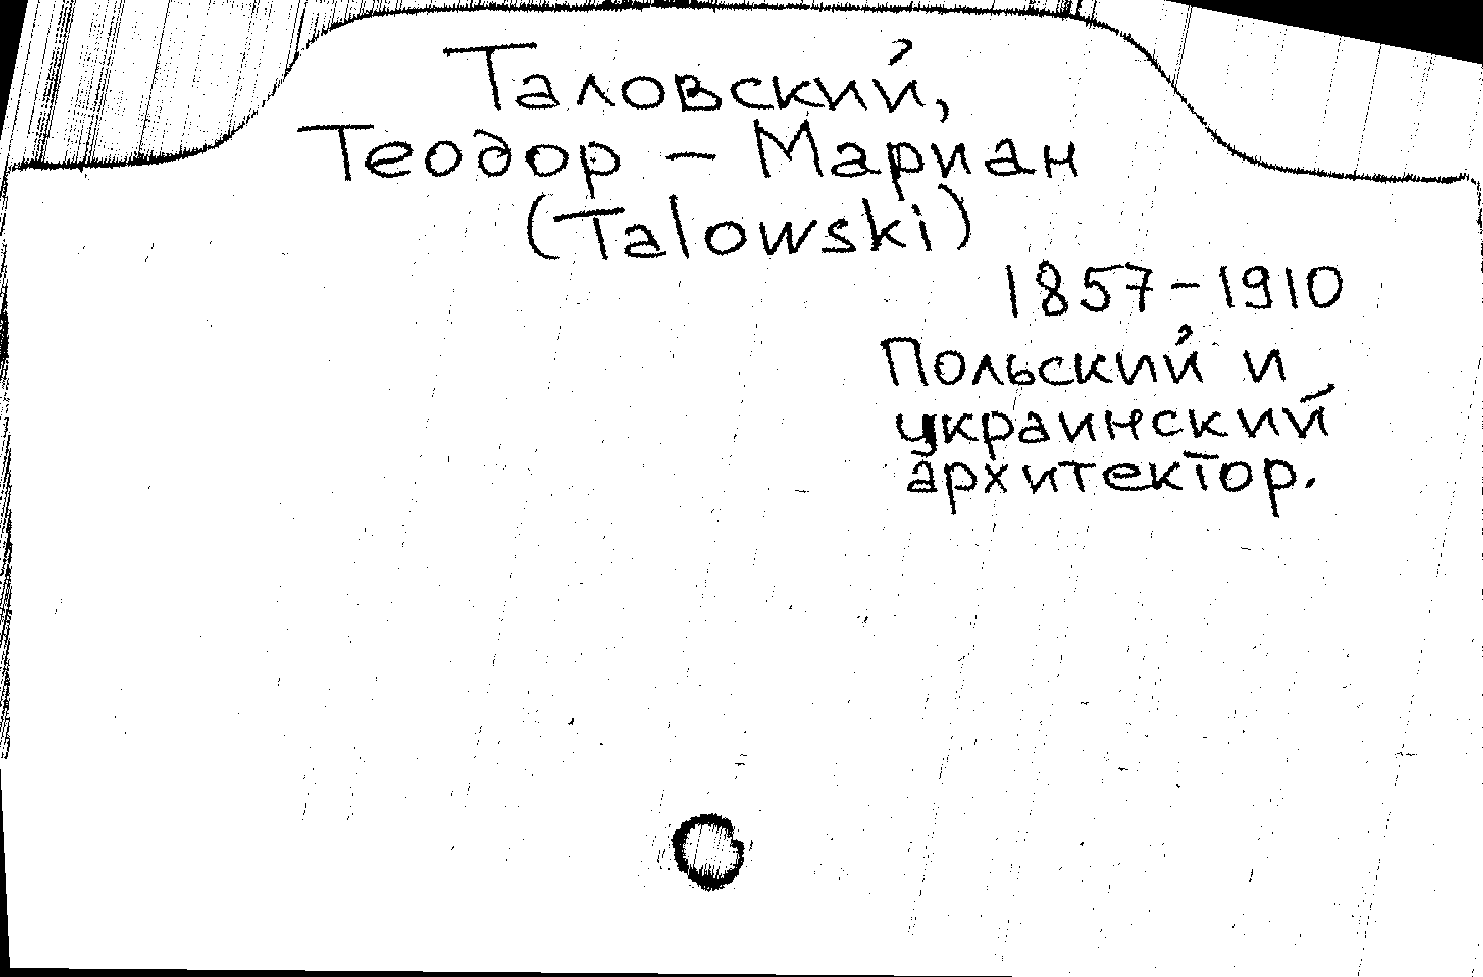 Таловский,
Теодор - Мариан
(Talowski)
1857-1910
Польский и
украинский
архитектор.